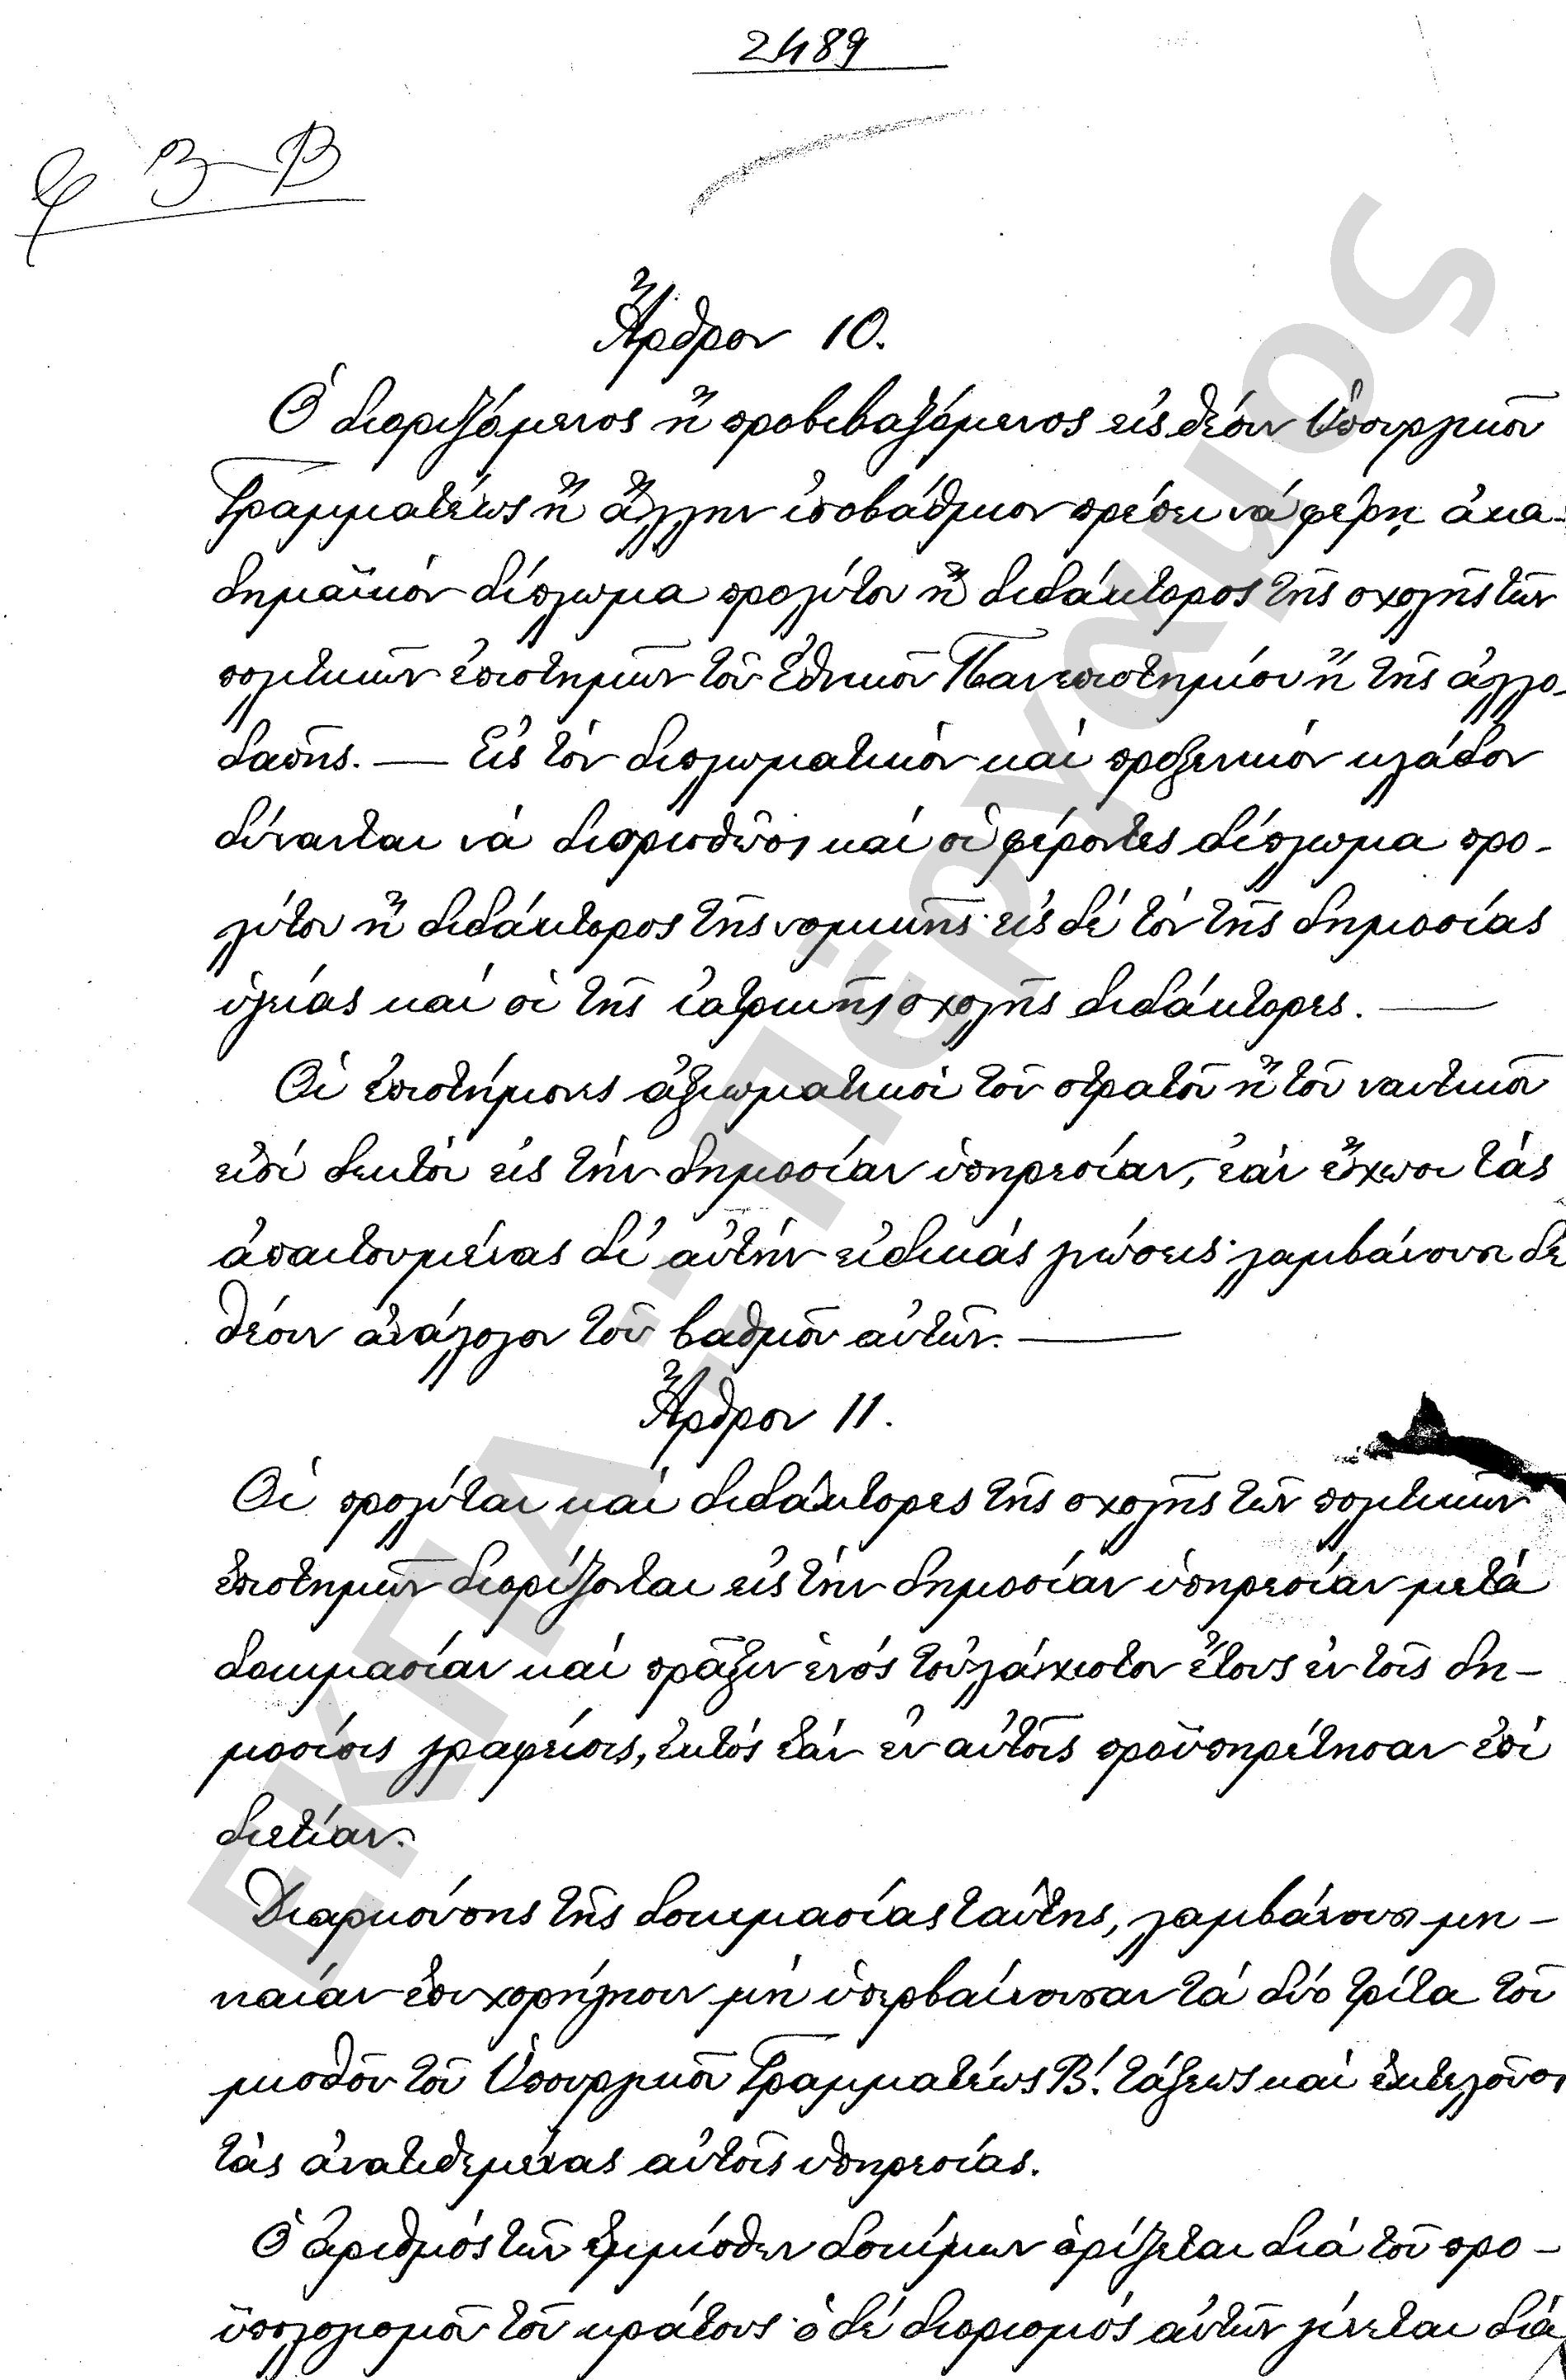 2489
Φ 3-Β
Ἄρθρον 10.
Ὁ διοριζόμενος ἤ προβιβαζόμενος εἰς θέσιν Ὑπουργικοῦ
Γραμματέως ἤ ἄλλην ἰσοβάθμιον πρέπει νά φέρῃ ἀκα-
δημαϊκόν δίπλωμα προλύτου ἤ διδάκτορος τῆς σχολῆς τῶν
πολιτικῶν ἐπιστημῶν τοῦ Ἐθνικοῦ Πανεπιστημίου ἤ τῆς ἀλλο-
δαπῆς. — Εἰς τόν διπλωματικόν καί προξενικόν κλάδον
δύνανται νά διορισθῶσι καί οἱ φέροντες δίπλωμα προ-
λύτου ἤ διδάκτορος τῆς νομικῆς· εἰς δέ τόν τῆς δημοσίας
ὑγείας καί οἱ τῆς ἰατρικῆς σχολῆς διδάκτορες. —
Οἱ ἐπιστήμονες ἀξιωματικοί τοῦ στρατοῦ ἤ τοῦ ναυτικοῦ
εἰσί δεκτοί εἰς τήν δημοσίαν ὑπηρεσίαν, ἐάν ἔχωσι τάς
ἀπαιτουμένας δι' αὐτήν εἰδικάς γνώσεις· λαμβάνουσι δέ
θέσιν ἀνάλογον τοῦ βαθμοῦ αὐτῶν. —
Ἄρθρον 11.
Οἱ προλύται καί διδάκτορες τῆς σχολῆς τῶν πολιτικῶν
ἐπιστημῶν διορίζονται εἰς τήν δημοσίαν ὑπηρεσίαν μετά
δοκιμασίαν καί πρᾶξιν ἑνός τοὐλάχιστον ἔτους ἐν τοῖς δη-
μοσίοις γραφείοις, ἐκτός ἐάν ἐν αὐτοῖς προϋπηρέτησαν ἐπί
διετίαν.
Διαρκούσης τῆς δοκιμασίας ταύτης, λαμβάνουσι μη-
νιαίαν ἐπιχορήγησιν μή ὑπερβαίνουσαν τά δύο τρίτα τοῦ
μισθοῦ τοῦ Ὑπουργικοῦ Γραμματέως Β! τάξεως καί ἐκτελοῦσι
τάς ἀνατιθεμένας αὐτοῖς ὑπηρεσίας.
Ὁ ἀριθμός τῶν ἐμμίσθων δοκίμων ὁρίζεται διά τοῦ προ-
ϋπολογισμοῦ τοῦ κράτους· ὁ δέ διορισμός αὐτῶν γίνεται διά
ΕΚΠΑ - ΠΕΡΓΑΜΟΣ